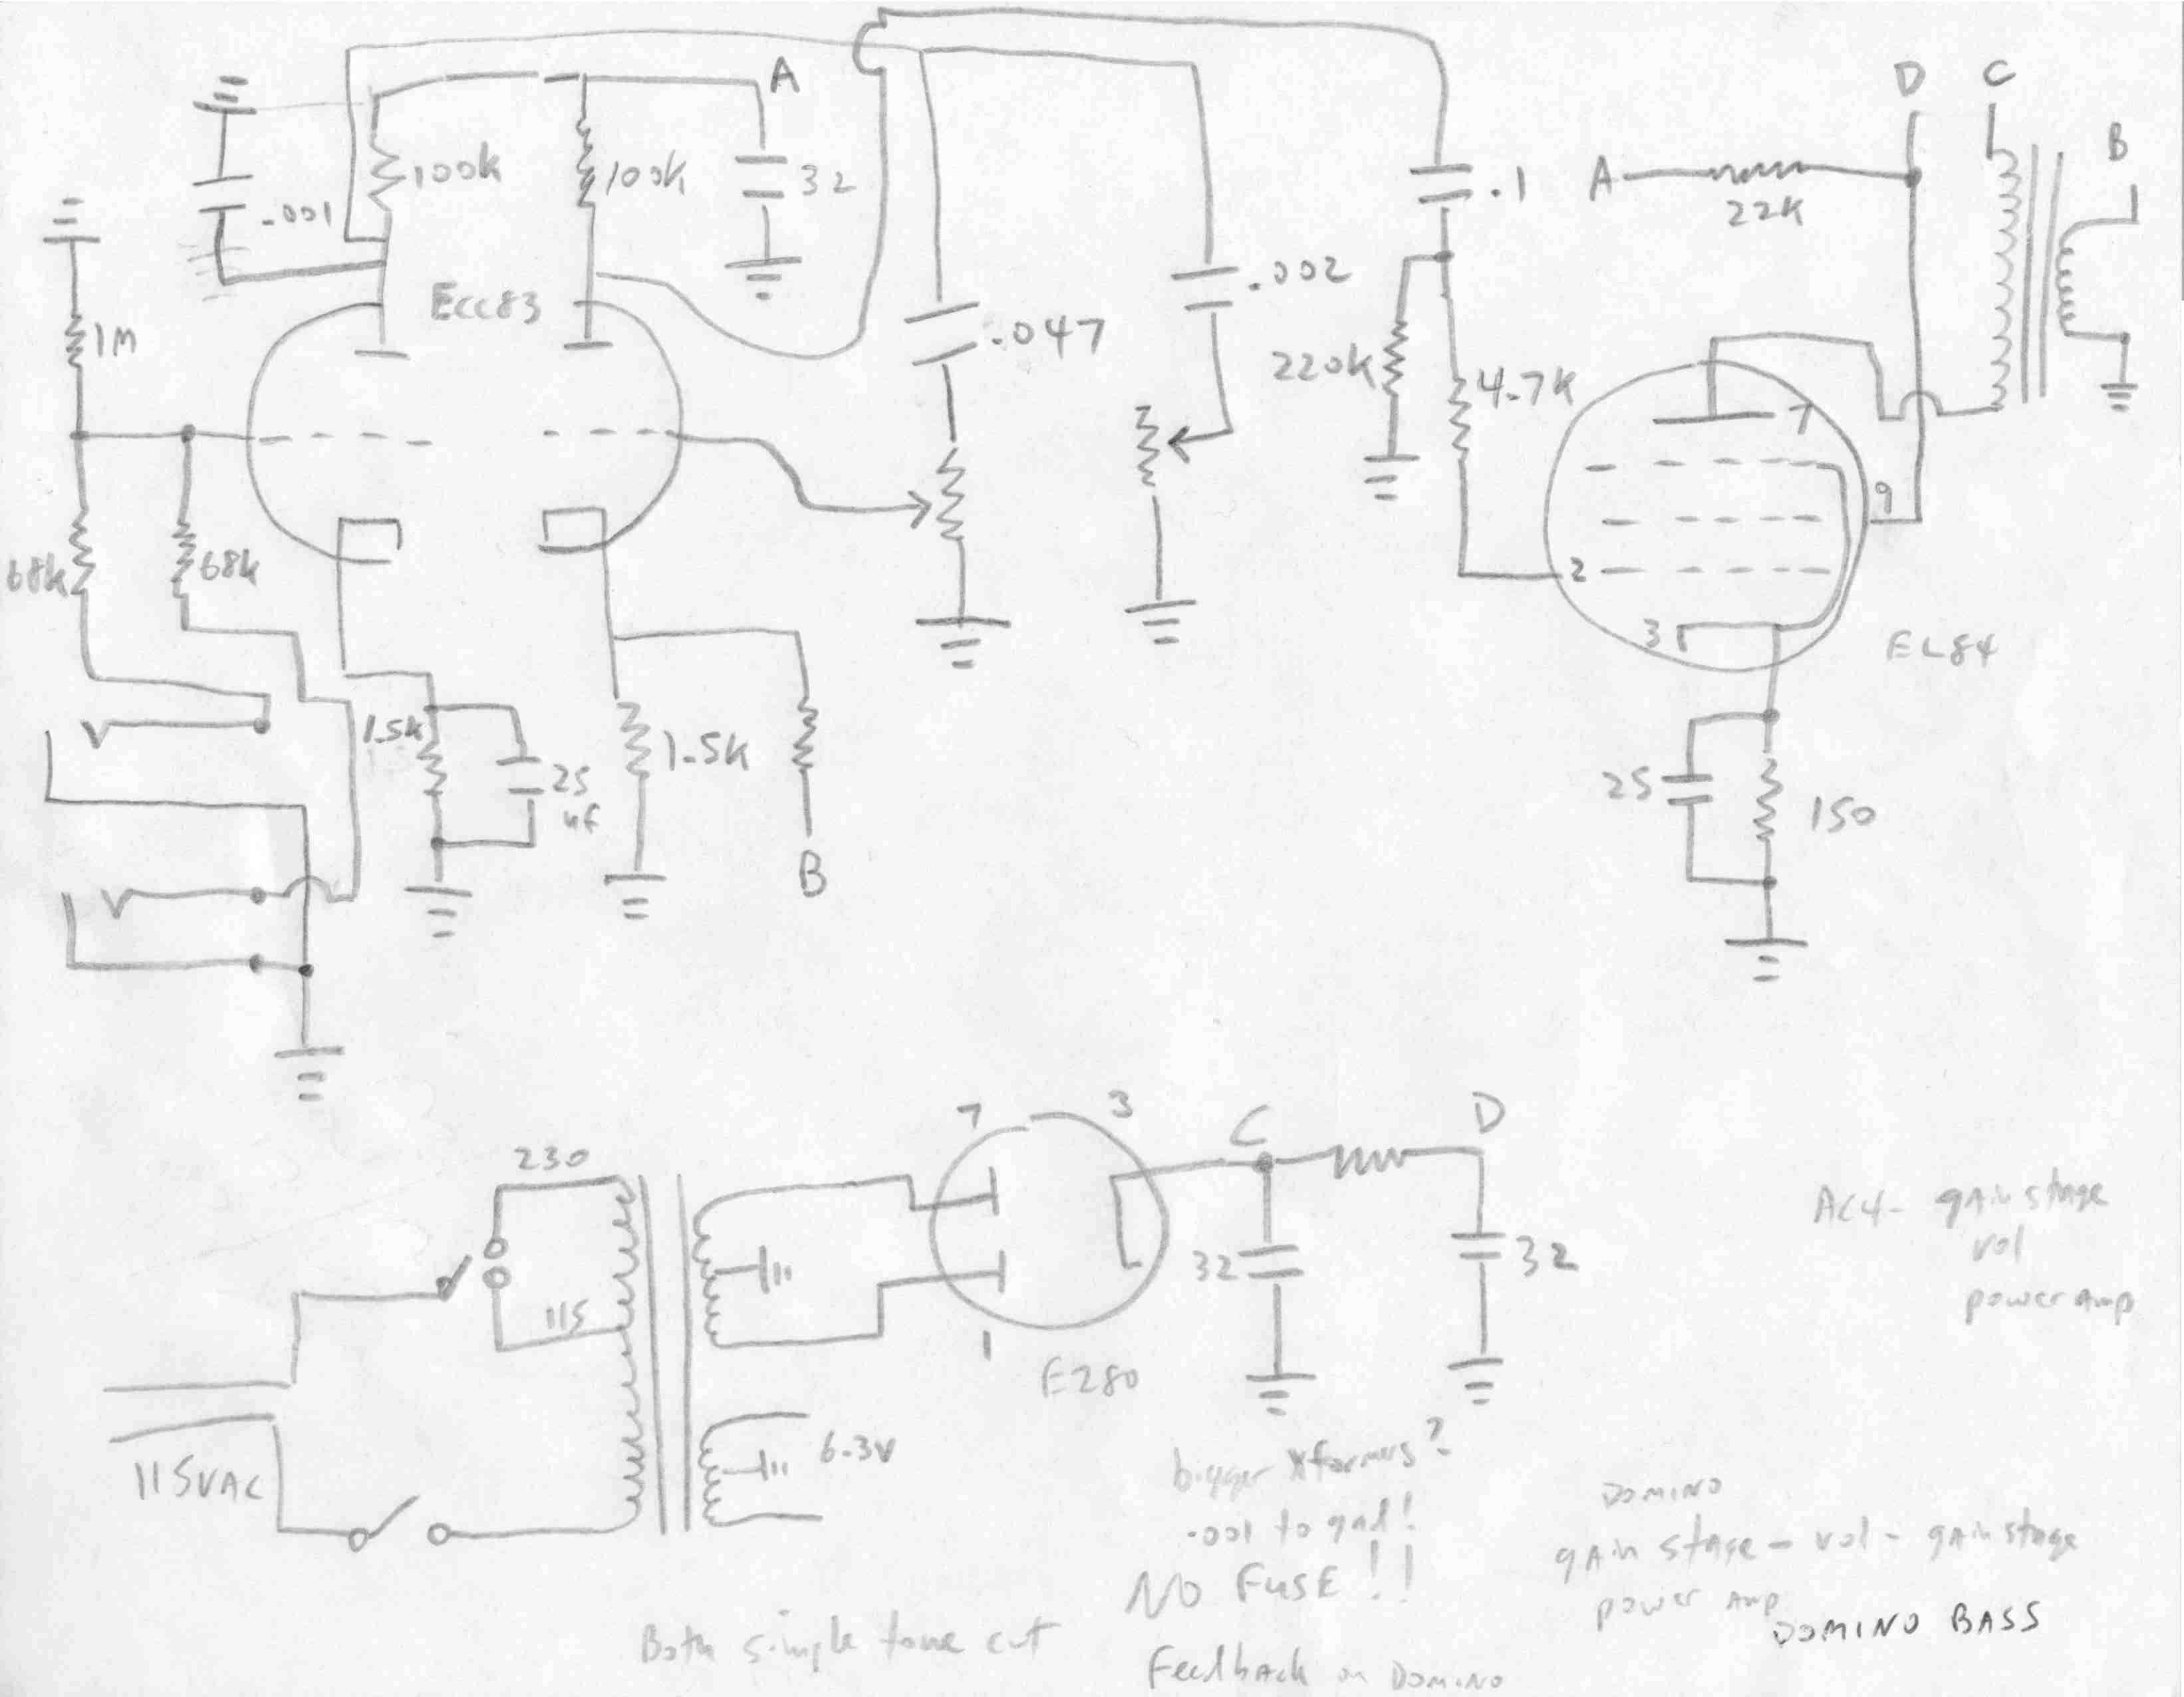 A
D C
B
100k
100k
32
.001
A
22K
.1
1M
Ecc83
.047
.002
220k
4.7K
7
9
68k
68k
2
3
EL84
1.5k
25
uf
1.5k
B
25
150
7
3
C
D
230
115
32
32
1
EZ80
115VAC
6.3V
AC4- gain stage
vol
power amp
bigger xformers?
.001 to gnd!
NO FUSE!!
Both simple tone cut
Feedback on Domino
DOMINO
gain stage - vol - gain stage
power amp
DOMINO BASS